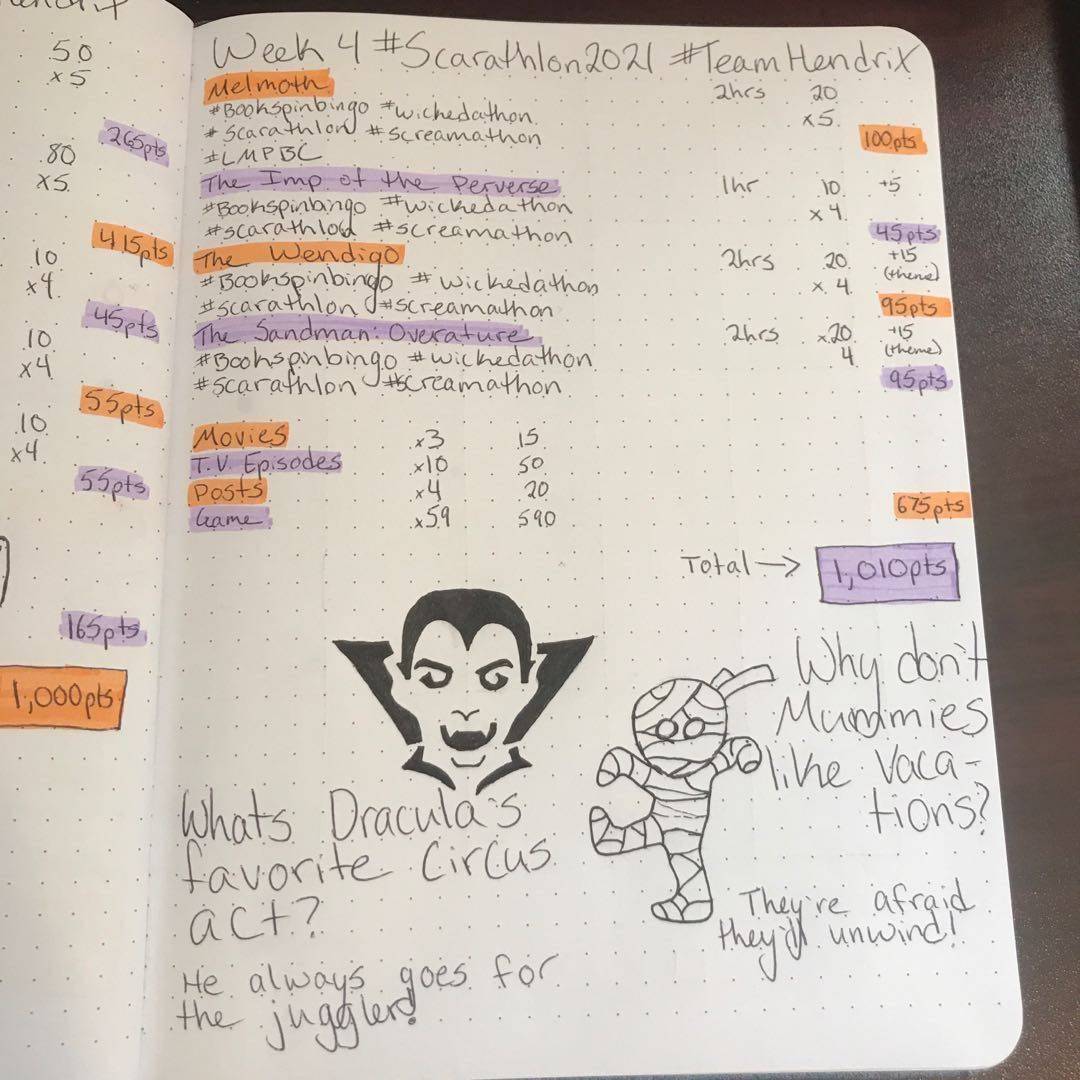 50
x5
265pts
80
x5
415pts
10
x4
45pts
10
x4
55pts
10
x4
55pts
165pts
1,000pts
Week 4 #Scarathlon2021 #TeamHendrix
Melmoth 2hrs 20
#Bookspinbingo #wickedathon x5
#scarathlon #screamathon 100pts
#LMPBC
The Imp of the Perverse 1hr 10 +5
#Bookspinbingo #wickedathon x4
#scarathlon #screamathon 45pts
The Wendigo 2hrs 20 +15
#Bookspinbingo #wickedathon x 4 (theme)
#scarathlon #screamathon 95pts
The Sandman: Overature 2hrs x20 +15
#Bookspinbingo #wickedathon 4 (theme)
#scarathlon #screamathon 95pts
Movies x3 15
T.V Episodes x10 50
Posts x4 20
Game x59 590
675pts
Total → 1,010pts
Whats Dracula's
favorite Circus
act?
He always goes for
the juggler!
Why don't
Mummies
like Vaca-
tions?
They're afraid
they'll unwind!